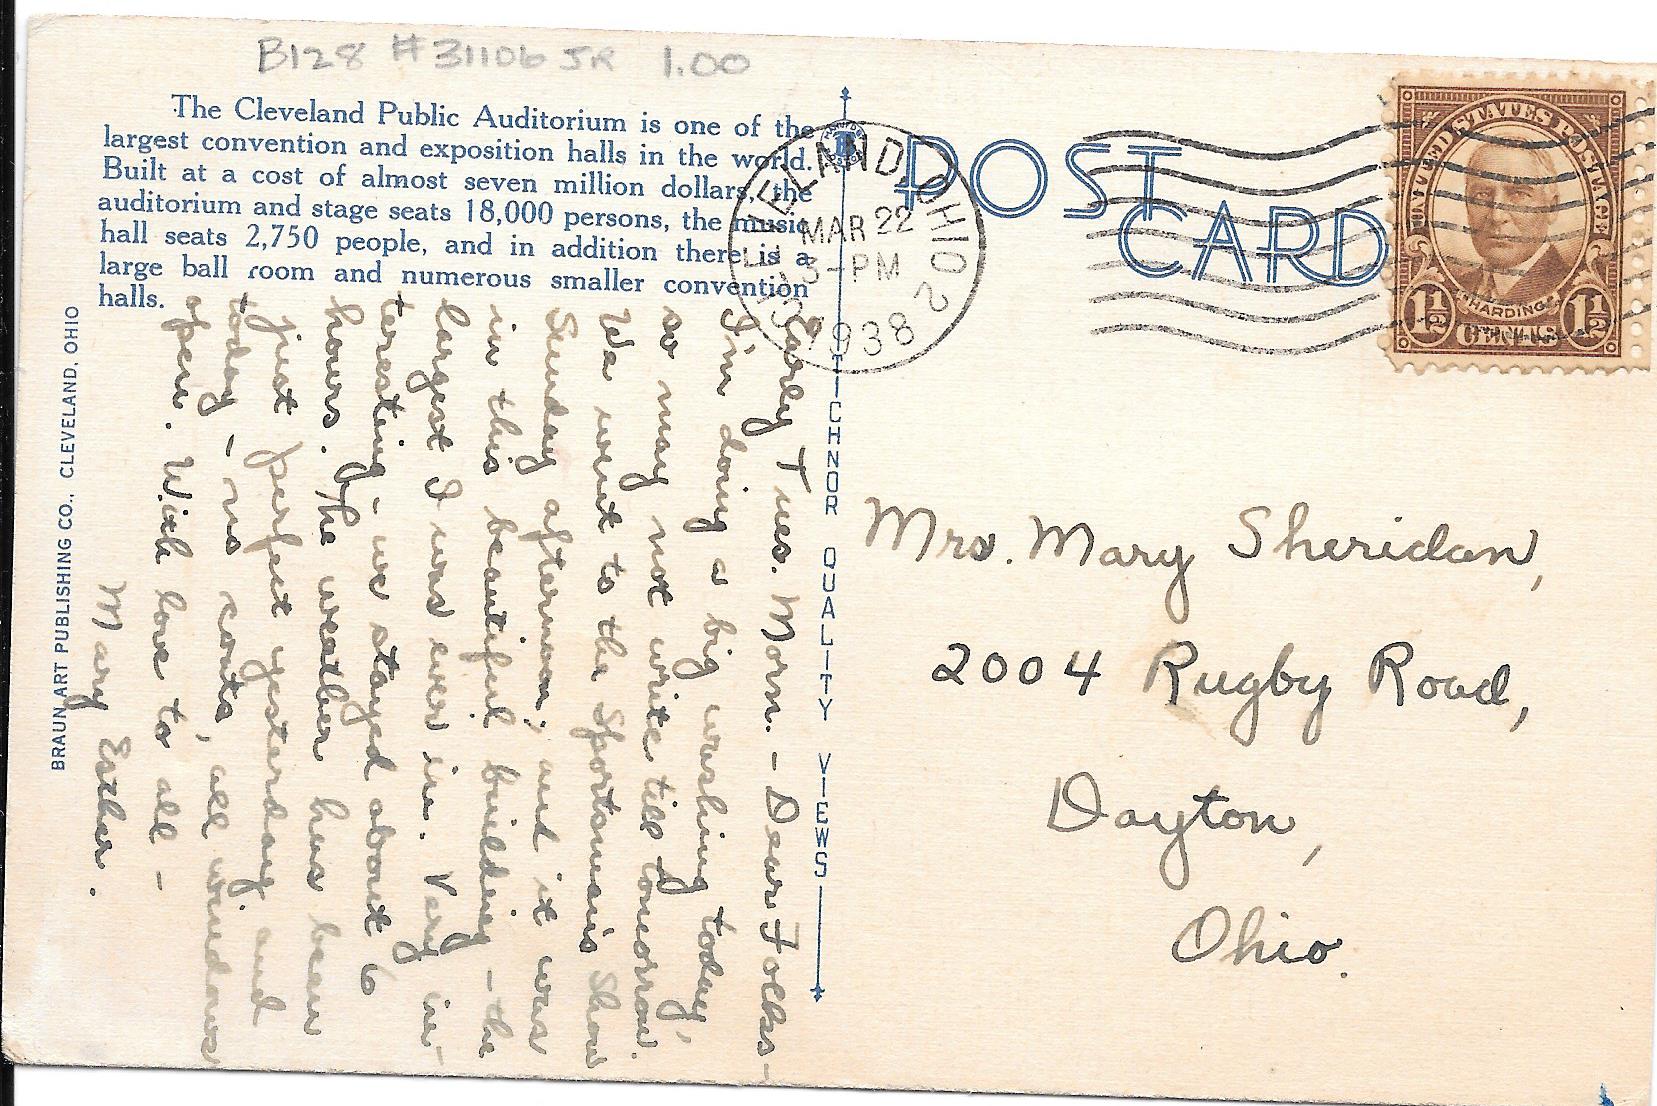 B128 #31106 JR 1.00
The Cleveland Public Auditorium is one of the
largest convention and exposition halls in the world.
Built at a cost of almost seven million dollars, the
auditorium and stage seats 18,000 persons, the music
hall seats 2,750 people, and in addition there is a
large ball room and numerous smaller convention
halls.
BRAUN ART PUBLISHING CO., CLEVELAND, OHIO
Early Tues. Morn. - Dear Folks -
I'm doing a big washing today,
so may not write till tomorrow.
We went to the Sportsman's Show
Sunday afternoon, and it was
in this beautiful building - the
largest I was ever in. Very in-
teresting - we stayed about 6
hours. The weather has been
just perfect yesterday and
today - no coats, all windows
open. With love to all -
Mary Esther.
TICHNOR QUALITY VIEWS
POST
CARD
CLEVELAND, OHIO 2
MAR 22
3-PM
1938
UNITED STATES POSTAGE
HARDING
1½ CENTS 1½
Mrs. Mary Sheridan,
2004 Rugby Road,
Dayton,
Ohio.